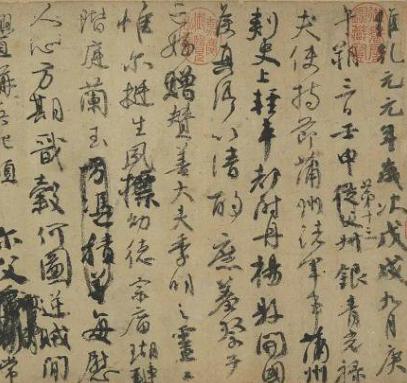 維乾元元年歲次戊戌九月庚
午朔三日壬申第十三叔銀青光祿
夫使持節蒲州諸軍事蒲州
刺史上輕車都尉丹楊縣開國
侯真卿以清酌庶羞祭于
亡姪贈贊善大夫季明之靈曰
惟爾挺生夙標幼德宗廟瑚璉
階庭蘭玉方憑積善每慰
人心方期戩穀何圖逆賊閒
釁稱兵犯順爾父常